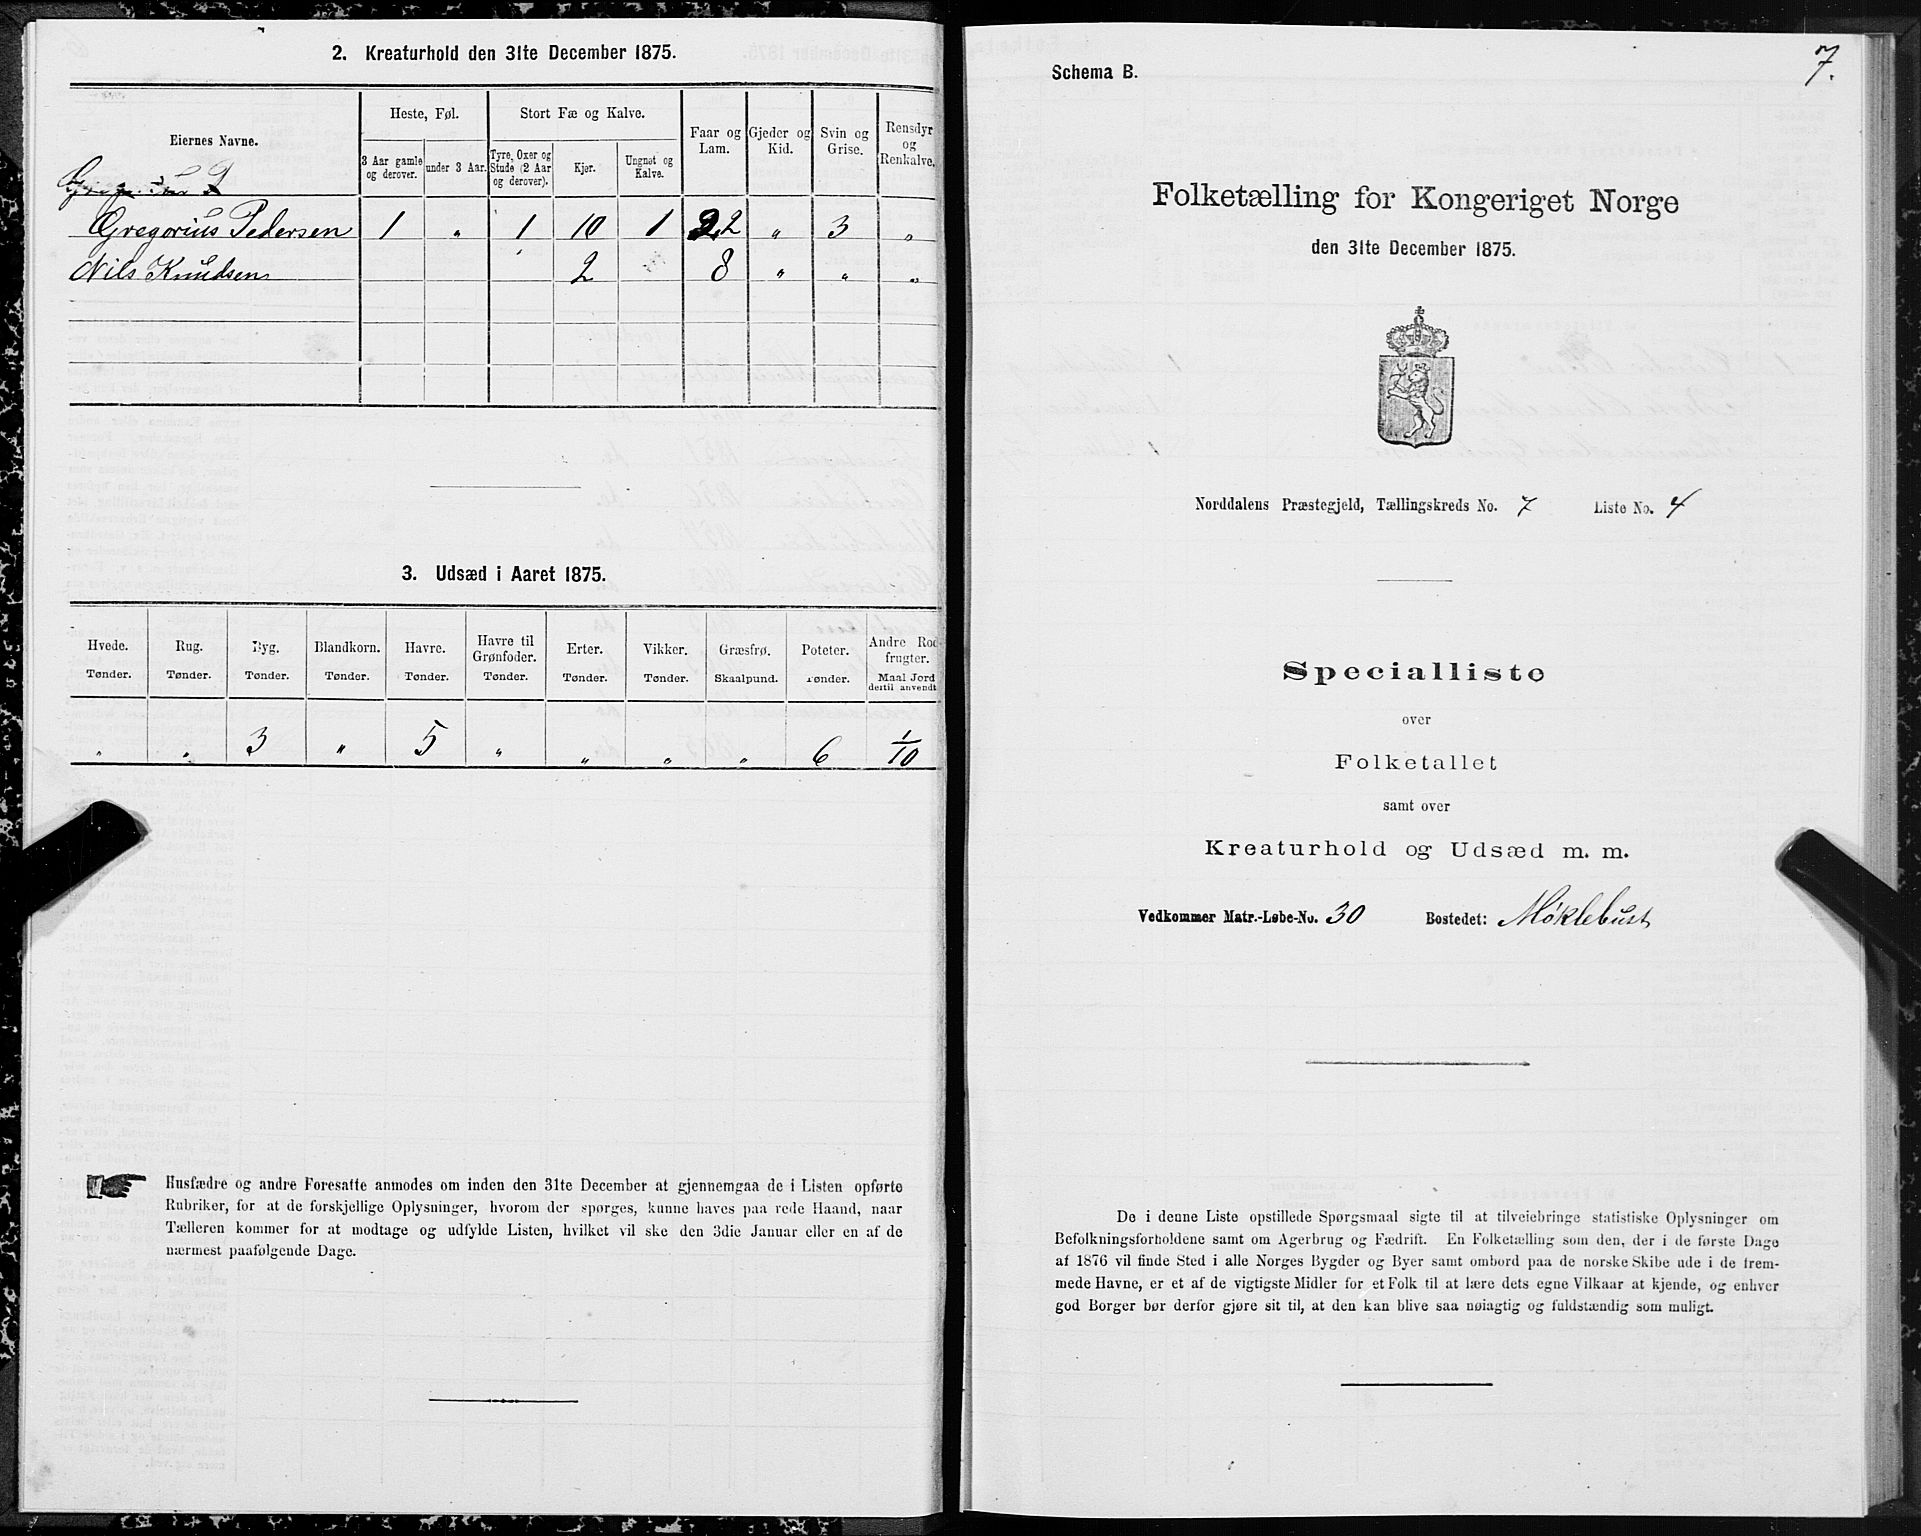 2. Kreaturhold den 31te December 1875.
Eiernes Navne.
Heste, Føl.
Stort Fæ og Kalve.
Faar og Lam.
Gjeder og Kid.
Svin og Grise.
Rensdyr og Renkalve.
3 Aar gamle og derover.
under 3 Aar.
Tyre, Oxer og Stude (2 Aar og derover).
Kjør.
Ungnøt og Kalve.
Gregorius Pedersen 1 " 1 10 1 22 " 3 "
Nils Knudsen 2 8 " " "
3. Udsæd i Aaret 1875.
Hvede. Rug. Byg. Blandkorn. Havre. Havre til Grønfoder. Erter. Vikker. Græsfrø. Poteter. Andre Rodfrugter.
Tønder. Tønder. Tønder. Tønder. Tønder. Tønder. Tønder. Tønder. Skaalpund. Tønder. Maal Jord dertil anvendt
" " 3 " 5 " " " " 6 1/10
Husfædre og andre Foresatte anmodes om inden den 31te December at gjennemgaa de i Listen opførte
Rubriker, for at de forskjellige Oplysninger, hvorom der spørges, kunne haves paa rede Haand, naar
Tælleren kommer for at modtage og udfylde Listen, hvilket vil ske den 3die Januar eller en af de
nærmest paafølgende Dage.
7.
Schema B.
Folketælling for Kongeriget Norge
den 31te December 1875.
Norddalens Præstegjeld, Tællingskreds No. 7 Liste No. 4
Specialliste
over
Folketallet
samt over
Kreaturhold og Udsæd m. m.
Vedkommer Matr.-Løbe-No. 30 Bostedet: Møklebust
De i denne Liste opstillede Spørgsmaal sigte til at tilveiebringe statistiske Oplysninger om
Befolkningsforholdene samt om Agerbrug og Fædrift. En Folketælling som den, der i de første Dage
af 1876 vil finde Sted i alle Norges Bygder og Byer samt ombord paa de norske Skibe ude i de frem-
mede Havne, er et af de vigtigste Midler for et Folk til at lære dets egne Vilkaar at kjende, og enhver
god Borger bør derfor gjøre sit til, at den kan blive saa nøiagtig og fuldstændig som muligt.